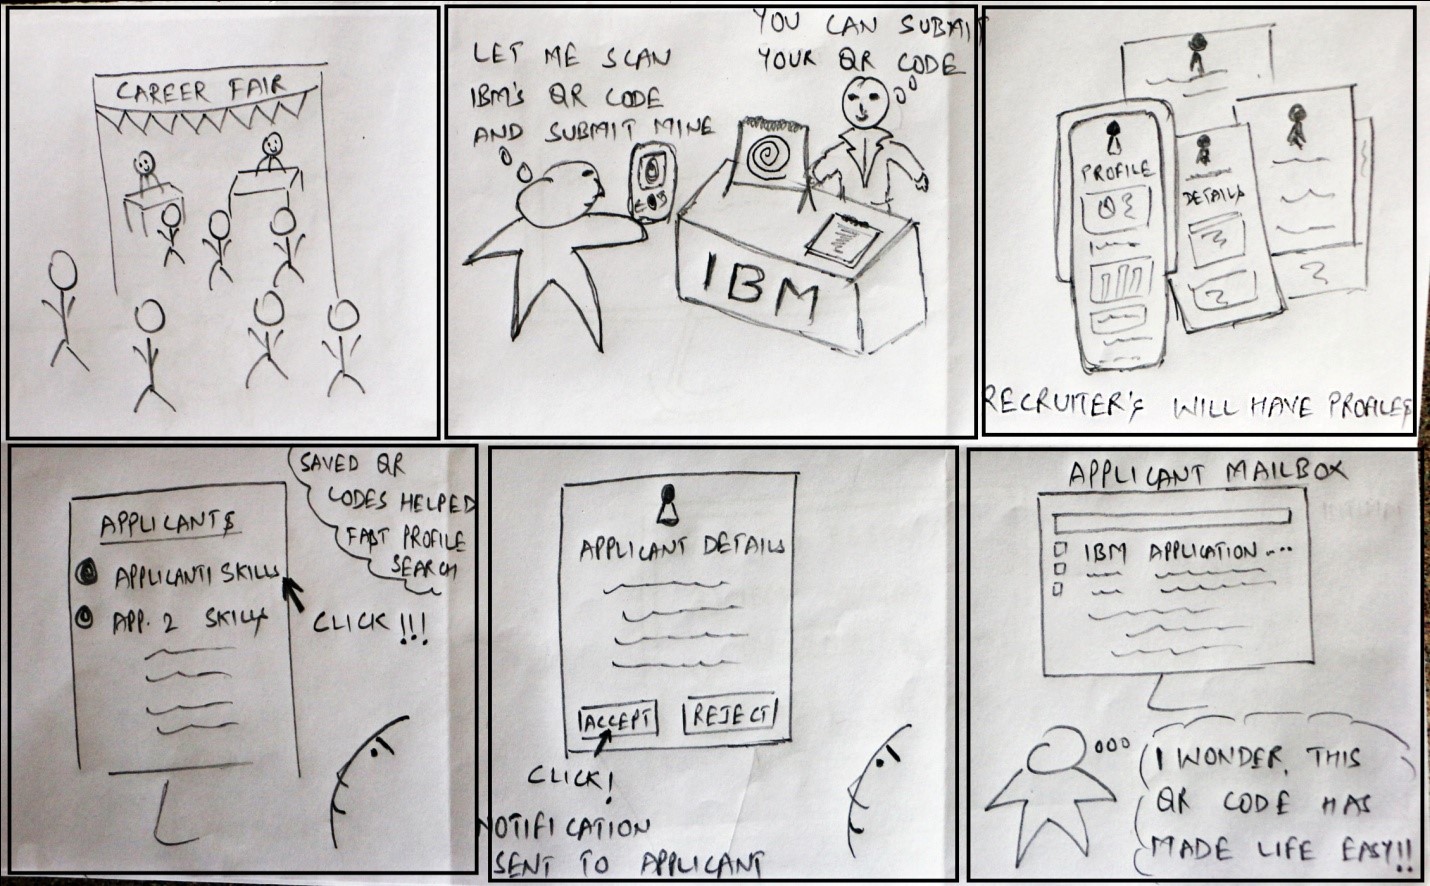 CAREER FAIR
LET ME SCAN
IBM'S QR CODE
AND SUBMIT MINE
YOU CAN SUBMIT
YOUR QR CODE
IBM
PROFILE
DETAILS
RECRUITER'S WILL HAVE PROFILES
APPLICANTS
APPLICANT1 SKILLS
APP. 2 SKILLS
SAVED QR
CODES HELPED
FAST PROFILE
SEARCH
CLICK!!!
APPLICANT DETAILS
ACCEPT REJECT
CLICK!
NOTIFICATION
SENT TO APPLICANT
APPLICANT MAILBOX
IBM APPLICATION....
I WONDER, THIS
QR CODE HAS
MADE LIFE EASY!!